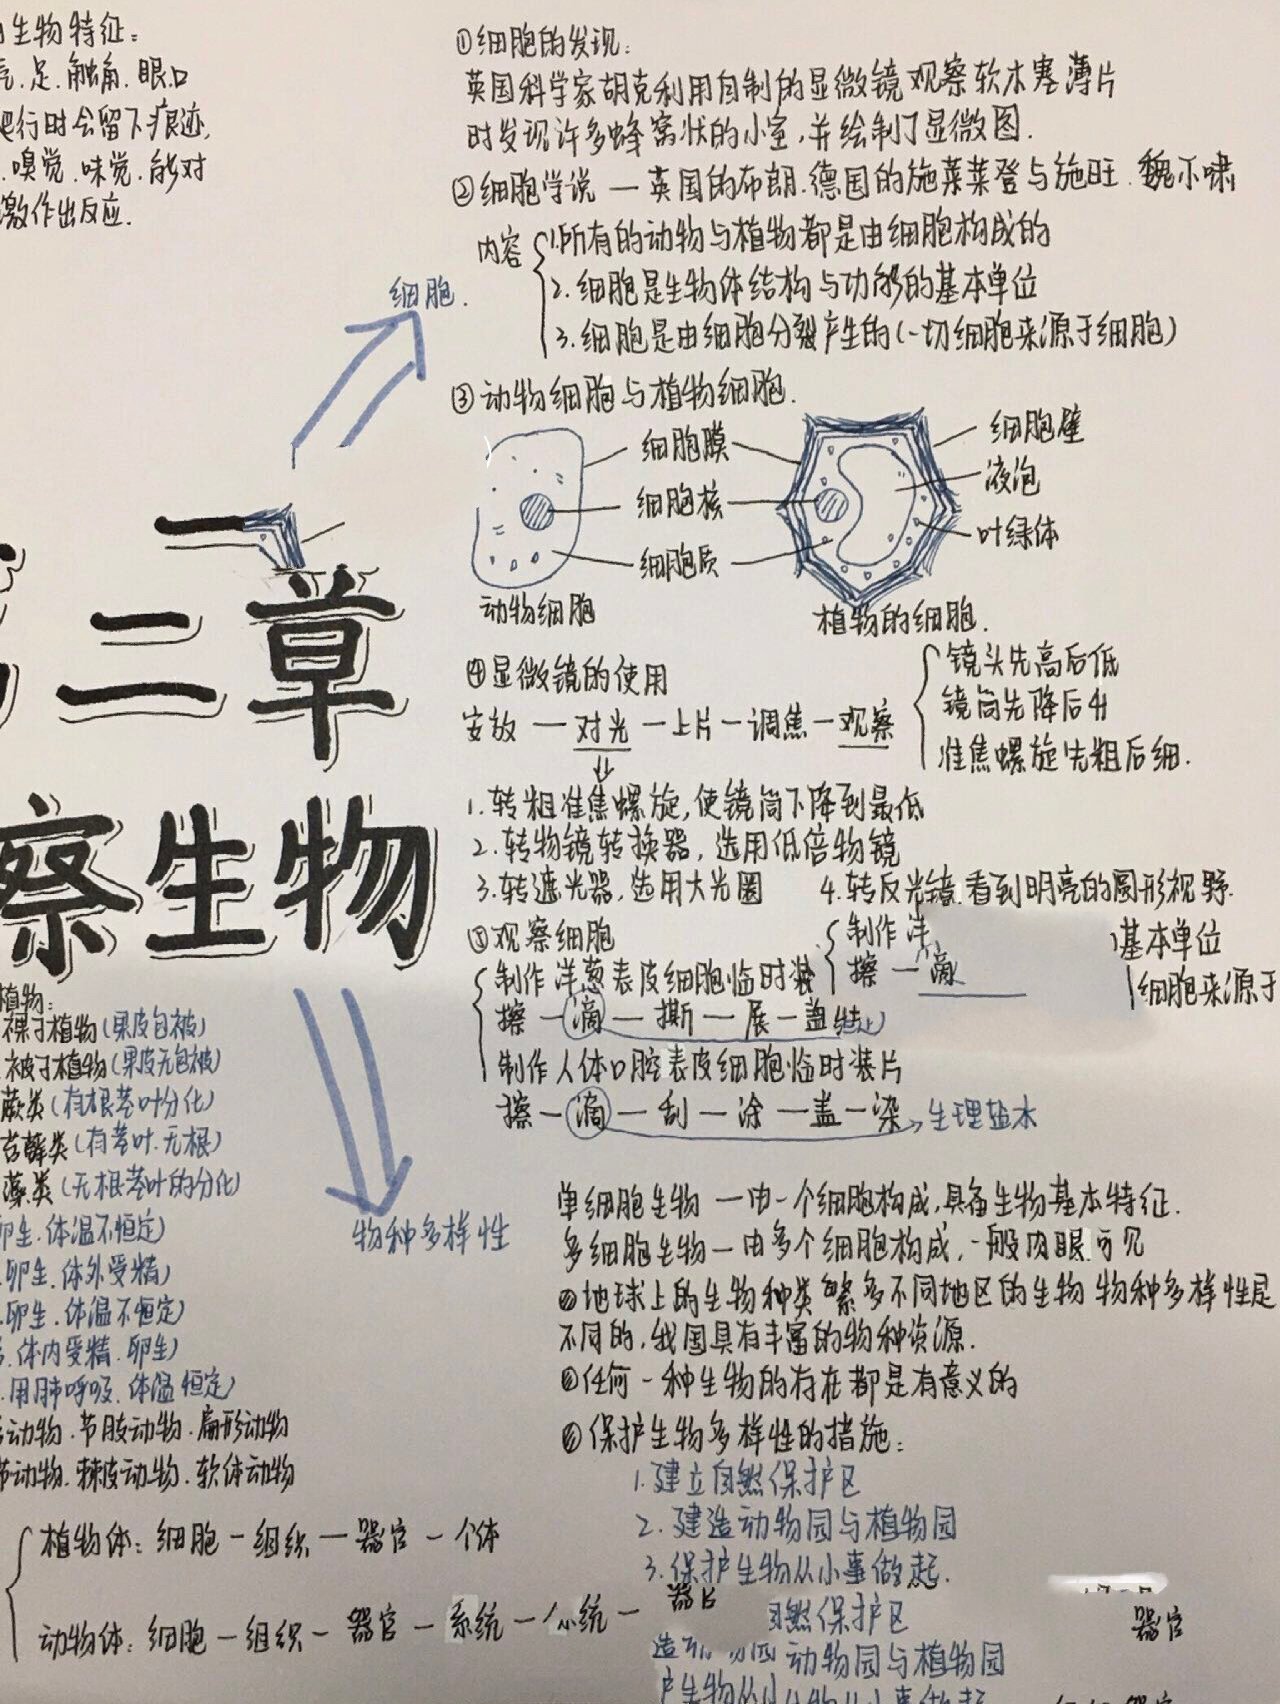 生物特征：
足.触角.眼口
爬行时会留下痕迹,
.嗅觉.味觉.能对
激作出反应.
①细胞的发现：
英国科学家胡克利用自制的显微镜观察软木塞薄片
时发现许多蜂窝状的小室,并绘制了显微图.
②细胞学说 — 英国的布朗.德国的施莱登与施旺.魏尔啸
内容
1.所有的动物与植物都是由细胞构成的
2.细胞是生物体结构与功能的基本单位
3.细胞是由细胞分裂产生的(一切细胞来源于细胞)
细胞.
③动物细胞与植物细胞.
细胞膜
细胞核
细胞质
细胞壁
液泡
叶绿体
动物细胞
植物的细胞.
二章
察生物
④显微镜的使用
安放 — 对光 — 上片 — 调焦 — 观察
镜头先高后低
镜筒先降后升
准焦螺旋先粗后细.
1.转粗准焦螺旋,使镜筒下降到最低
2.转物镜转换器,选用低倍物镜
3.转遮光器,选用大光圈 4.转反光镜.看到明亮的圆形视野.
⑤观察细胞
制作洋葱表皮细胞临时装
擦 — 滴 — 撕 — 展 — 盖
制作人体口腔表皮细胞临时装片
擦 — 滴 — 刮 — 涂 — 盖 — 染 生理盐水
制作洋
擦 — 滴
基本单位
细胞来源于
植物：
裸子植物(果皮包被)
被子植物(果皮无包被)
蕨类(有根茎叶分化)
苔藓类(有茎叶.无根)
藻类(无根茎叶的分化)
卵生.体温不恒定)
.卵生.体外受精)
.卵生.体温不恒定)
.体内受精.卵生)
.用肺呼吸.体温恒定)
动物.节肢动物.扁形动物
动物.棘皮动物.软体动物
物种多样性
单细胞生物 — 由一个细胞构成,具备生物基本特征.
多细胞生物 — 由多个细胞构成,一般肉眼可见
地球上的生物种类繁多不同地区的生物 物种多样性是
不同的,我国具有丰富的物种资源.
任何一种生物的存在都是有意义的
保护生物多样性的措施：
1.建立自然保护区
2.建造动物园与植物园
3.保护生物从小事做起.
植物体：细胞 — 组织 — 器官 — 个体
动物体：细胞 — 组织 — 器官 — 系统 —
然保护区
器官
动物园与植物园